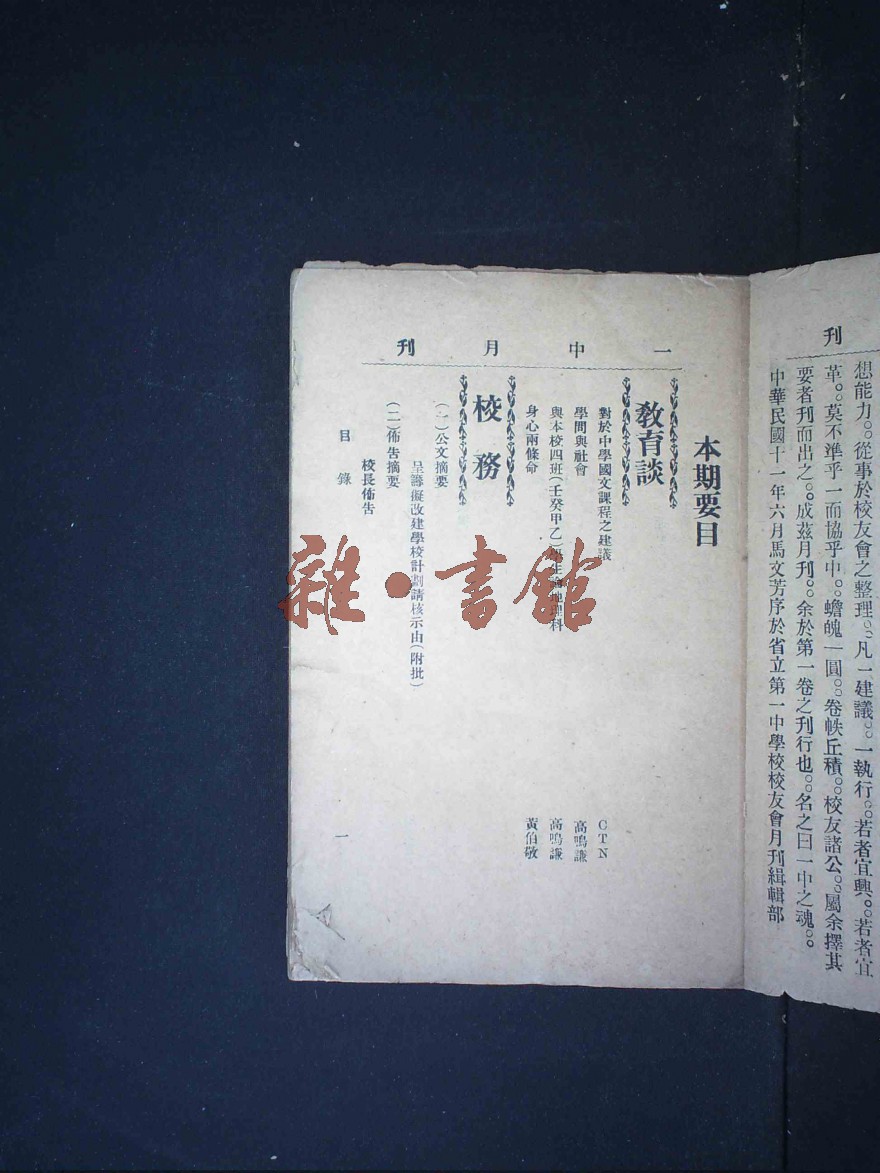 刊
想能力。從事於校友會之整理。凡一建議。一執行。若者宜興。若者宜
革。莫不準乎一而協乎中。蟾魄一圓。卷帙丘積。校友諸公。屬余擇其
要者刊而出之。成茲月刊。余於第一卷之刊行也。名之曰一中之魂。
中華民國十一年六月馬文芳序於省立第一中學校校友會月刊緝輯部
一中月刊
本期要目
教育談
對於中學國文課程之建議 CTN
學問與社會 高鳴謙
與本校四班(壬癸甲乙)學生論地理科 高鳴謙
身心兩條命 黃伯敬
校務
(一)公文摘要
呈籌擬改建學校計劃請核示由(附批)
(二)佈告摘要
校長佈告
目錄 一
雜·書館